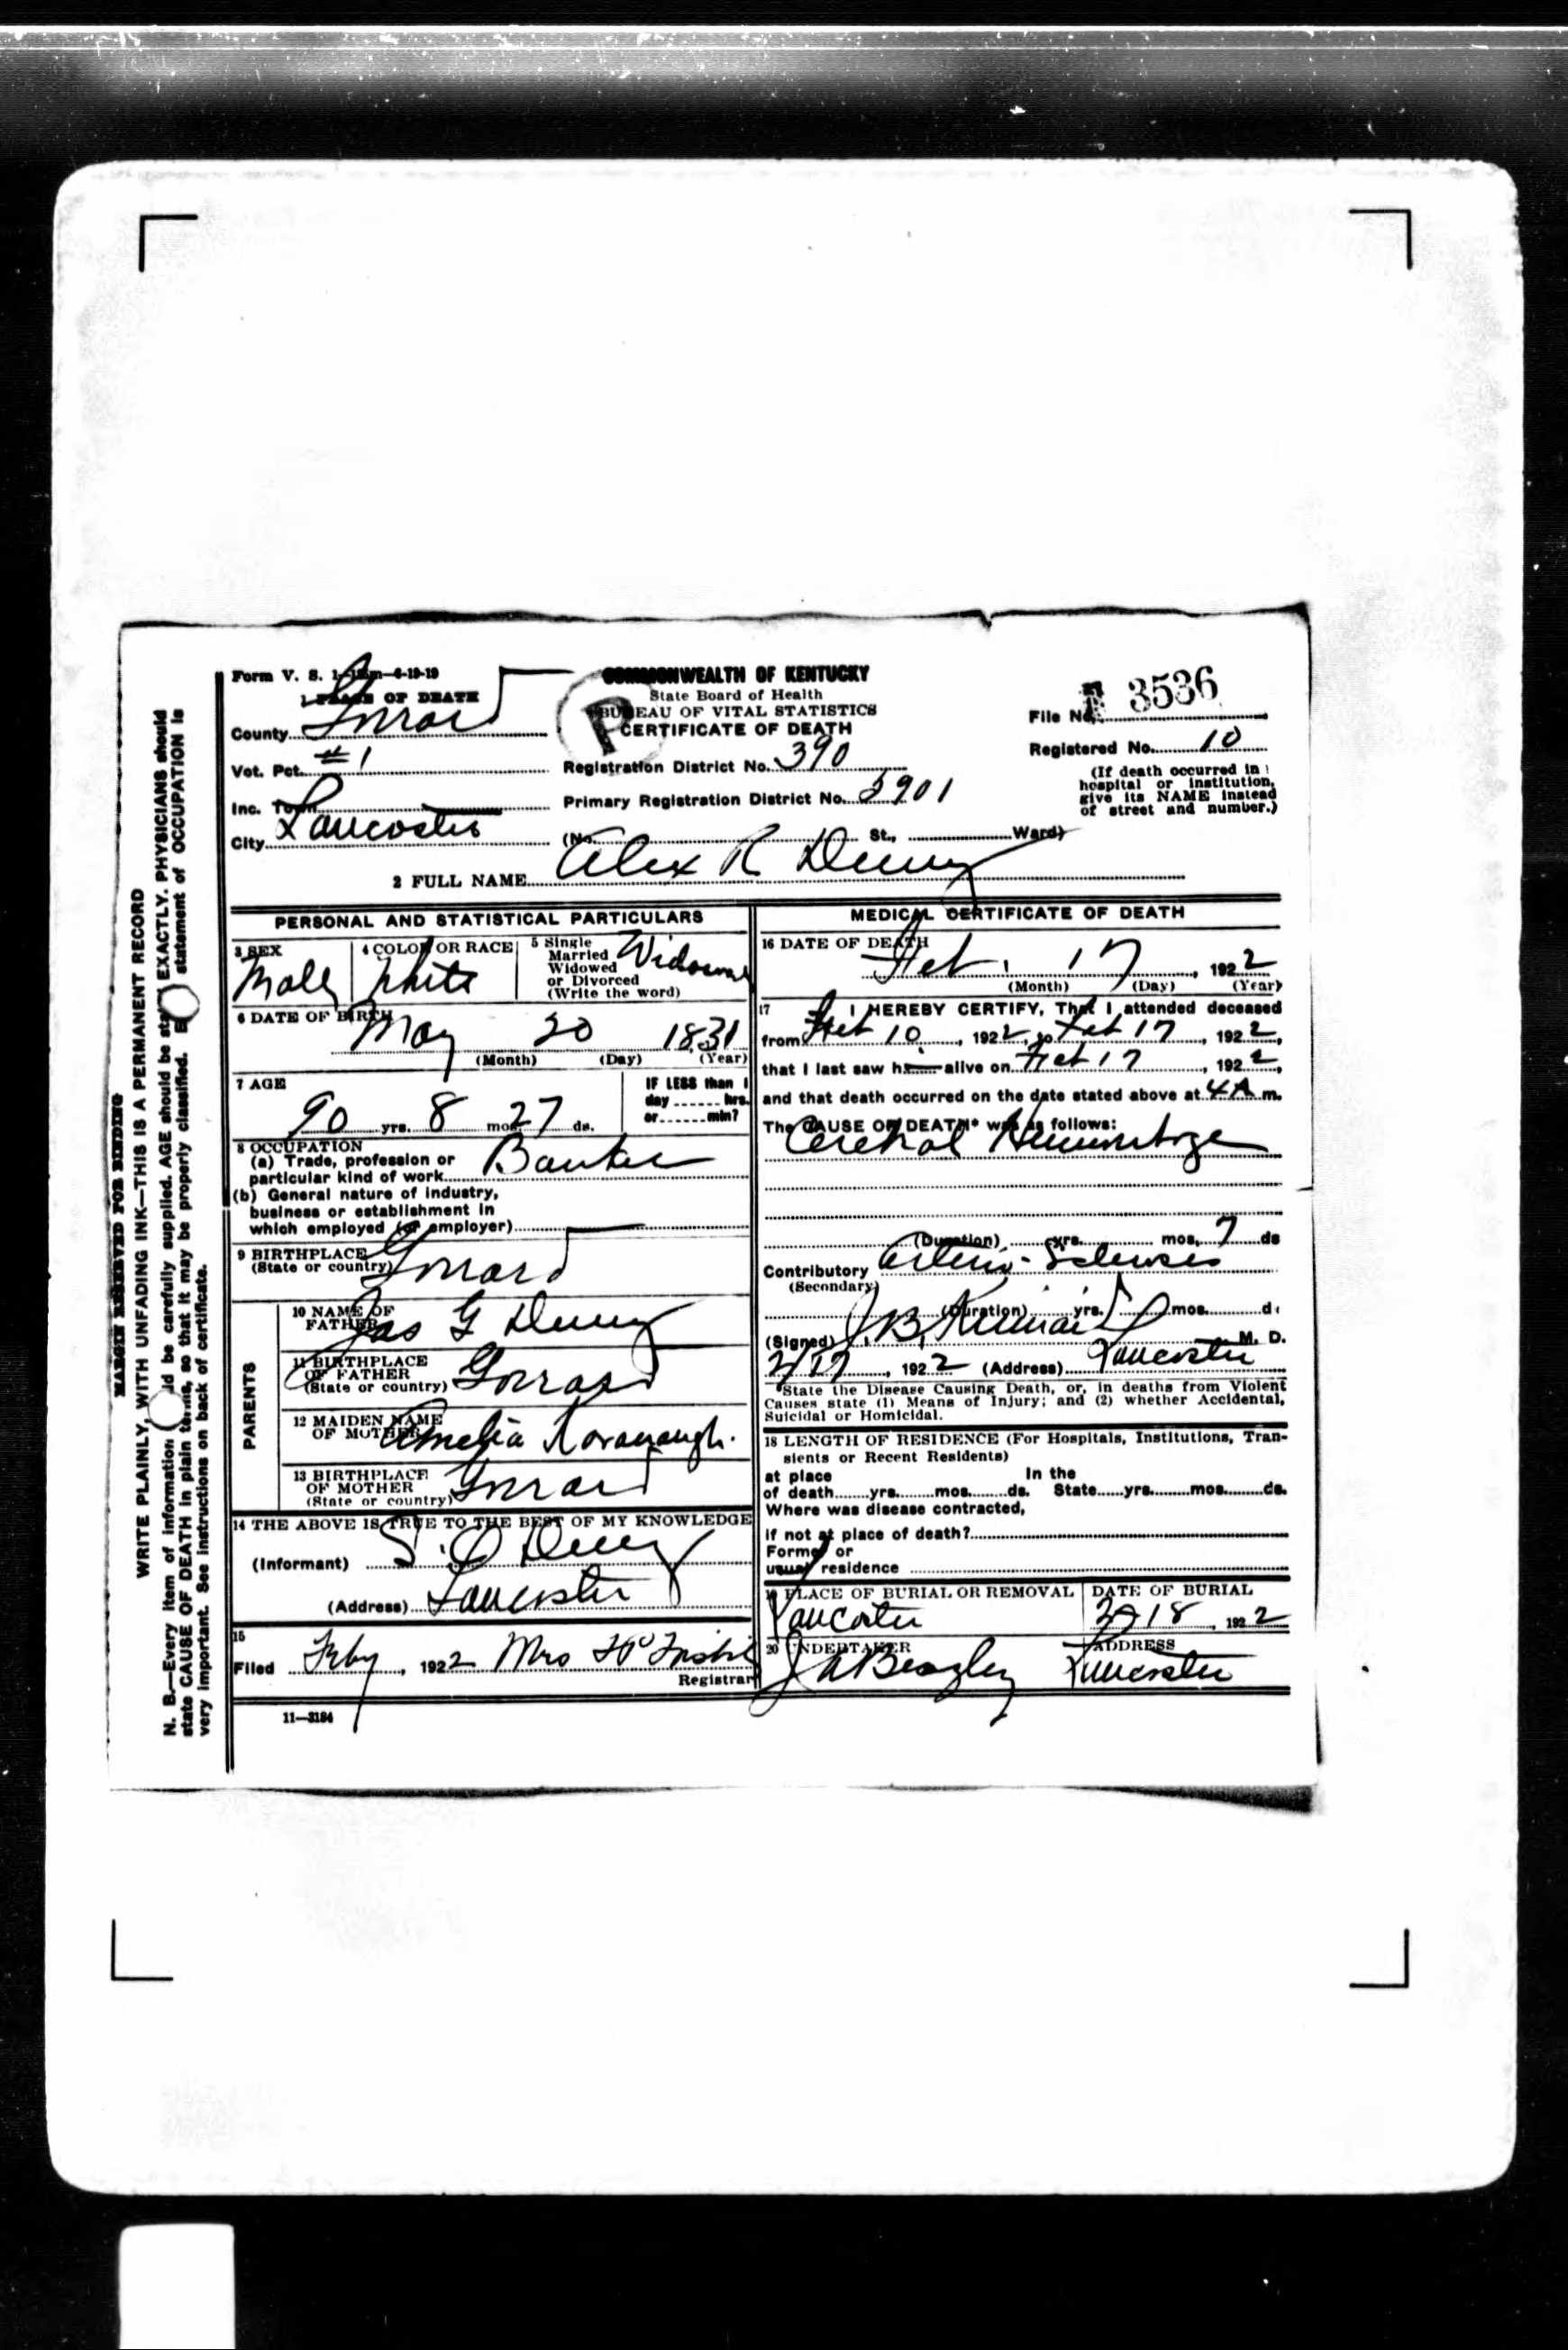 Form V. S. 1- -6-19-19
COMMONWEALTH OF KENTUCKY
State Board of Health
BUREAU OF VITAL STATISTICS
CERTIFICATE OF DEATH
P
File No. 3536
Registered No. 10
(If death occurred in
hospital or institution,
give its NAME instead
of street and number.)
1 PLACE OF DEATH
County Garrard
Vot. Pct. #1
Registration District No. 390
Inc. Town
Primary Registration District No. 3901
City Lancaster (No. St., Ward)
2 FULL NAME Alex R Denny
PERSONAL AND STATISTICAL PARTICULARS
3 SEX Male
4 COLOR OR RACE White
5 Single
Married
Widowed
or Divorced
(Write the word)
Widower
6 DATE OF BIRTH
May 20 1831
(Month) (Day) (Year)
7 AGE
90 yrs. 8 mos. 27 ds.
IF LESS than 1
day hrs.
or min?
8 OCCUPATION
(a) Trade, profession or
particular kind of work Banker
(b) General nature of industry,
business or establishment in
which employed (or employer)
9 BIRTHPLACE
(State or country) Garrard
PARENTS
10 NAME OF
FATHER Jas G Denny
11 BIRTHPLACE
OF FATHER
(State or country) Garrard
12 MAIDEN NAME
OF MOTHER Amelia Kavanaugh.
13 BIRTHPLACE
OF MOTHER
(State or country) Garrard
14 THE ABOVE IS TRUE TO THE BEST OF MY KNOWLEDGE
(Informant) Denny
(Address) Lancaster
15
Filed Feby , 1922 Mrs
Registrar
11-3184
MEDICAL CERTIFICATE OF DEATH
16 DATE OF DEATH
Feb. 17, 1922
(Month) (Day) (Year)
17 I HEREBY CERTIFY, That I attended deceased
from Feb 10, 1922, to Feb 17, 1922,
that I last saw h alive on Feb 17, 1922,
and that death occurred on the date stated above at 4A m.
The CAUSE OF DEATH* was as follows:
Cerebral Hemorrhage
(Duration) yrs. mos. 7 ds
Contributory Arterio-Sclerosis
(Secondary)
(Duration) yrs. mos. ds
(Signed) J.B. Kinnaird M. D.
2/17, 1922 (Address) Lancaster
*State the Disease Causing Death, or, in deaths from Violent
Causes state (1) Means of Injury; and (2) whether Accidental,
Suicidal or Homicidal.
18 LENGTH OF RESIDENCE (For Hospitals, Institutions, Tran-
sients or Recent Residents)
at place In the
of death yrs. mos. ds. State yrs. mos. ds.
Where was disease contracted,
if not at place of death?
Former or
usual residence
19 PLACE OF BURIAL OR REMOVAL
Lancaster
DATE OF BURIAL
18, 1922
20 UNDERTAKER
J A Beazley
ADDRESS
Lancaster
MARGIN RESERVED FOR BINDING
WRITE PLAINLY, WITH UNFADING INK—THIS IS A PERMANENT RECORD
N. B.—Every item of information should be carefully supplied. AGE should be stated EXACTLY. PHYSICIANS should
state CAUSE OF DEATH in plain terms, so that it may be properly classified. statement of OCCUPATION is
very important. See instructions on back of certificate.